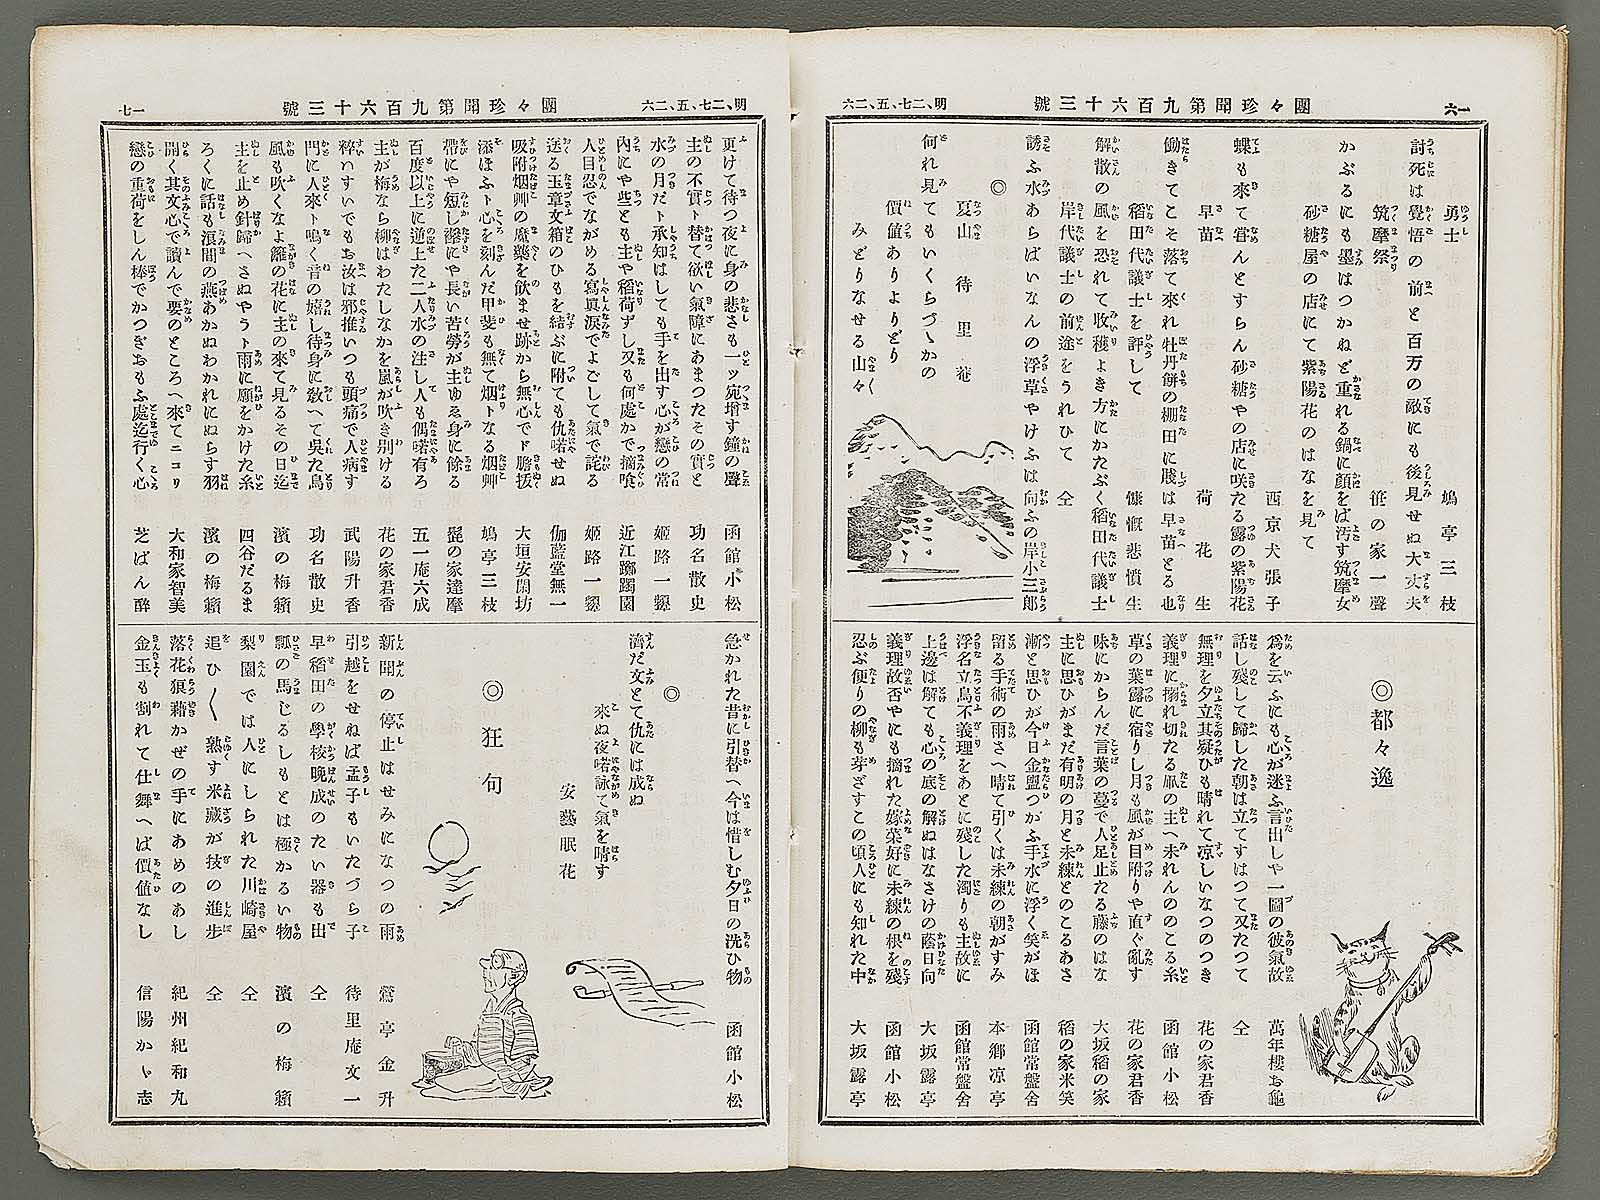 一六
團々珍聞第九百六十三號
明、二七、五、二六
勇士　鳩亭三枝
討死は覺悟の前と百万の敵にも後見せぬ大丈夫
筑摩祭　笹の家一聲
かぶるにも墨はつかねど重れる鍋に顔をば汚す筑摩女
砂糖屋の店にて紫陽花のはなを見て
西京犬張子
蝶も來て甞んとすらん砂糖やの店に咲たる露の紫陽花
早苗　荷花生
働きてこそ落て來れ牡丹餅の棚田に賤は早苗とる也
稻田代議士を評して　慷慨悲憤生
解散の風を恐れて收穫よき方にかたぶく稻田代議士
岸代議士の前途をうれひて　仝
誘ふ水あらばいなんの浮草やけふは向ふの岸小三郎
◎
夏山　待里菴
何れ見てもいくらづゝかの
價値ありよりどり
みどりなせる山々
◎都々逸
爲を云ふにも心が迷ふ言出しや一圖の彼氣故　萬年樓お龜
話し殘して歸した朝は立てすはつて又たつて　仝
無理を夕立其疑ひも晴れて凉しいなつのつき　花の家君香
義理に搦れ切たる凧の主へ未れんののこる糸　函館小松
草の葉露に宿りし月も風が目附りや直ぐ亂す　花の家君香
味にからんだ言葉の蔓で人足止たる藤のはな　大坂稻の家
主に思ひがまだ有明の月と未練とのこるあさ　稻の家米笑
漸と思ひが今日金盥つがふ手水に浮く笑がほ　函館常盤舍
留る手術の雨さへ晴て引くは未練の朝がすみ　本郷凉亭
浮名立鳥不義理をあとに殘した濁りも主故に　函館常盤舍
上邊は解ても心の底の解ぬはなさけの蔭日向　大坂露亭
義理故否やにも摘れた嫁菜好に未練の根を殘　函館小松
忍ぶ便りの柳も芽ざすこの頃人にも知れた中　大坂露亭
明、二七、五、二六
團々珍聞第九百六十三號
一七
更けて待つ夜に身の悲さも一ッ宛增す鐘の聲　函館小松
主の不實ト替て欲い氣障にあまつたその實と　功名散史
水の月だト承知はしても手を出す心が戀の常　姬路一颦
內にや些とも主や稻荷ずし又も何處かで摘喰　近江躑躅園
人目忍でながめる寫眞淚でよごして氣で詫る　姬路一颦
送る玉章文箱のひもを結ぶに附ても仇喏せぬ　伽藍堂無一
吸附烟艸の魔藥を飮ませ跡から無心でド膽拔　大垣安閑坊
添ほふト心を刻んだ甲斐も無て烟トなる烟艸　鳩亭三枝
帶にや短し襷にや長い苦勞が主ゆゑ身に餘る　髭の家達摩
百度以上に逆上た二人水の注し人も偶喏有ろ　五一庵六成
主が梅なら柳はわたしなかを嵐が吹き別ける　花の家君香
粹いすいでもお汝は邪推いつも頭痛で人病す　武陽升香
門に人來ト鳴く音の嬉し待身に敎へて吳た鳥　功名散史
風も吹くなよ籬の花に主の來て見るその日迄　濱の梅籟
主を止め針歸へさぬやうト雨に願をかけた糸　四谷だるま
ろくに話も浪間の燕あかぬわかれにぬらす羽　濱の梅籟
開く其文心で讀んで要のところへ來てニコリ　大和家智美
戀の重荷をしん棒でかつぎおもふ處迄行く心　芝ばん醉
急かれた昔に引替へ今は惜しむ夕日の洗ひ物　函館小松
◎
濟だ文とて仇には成ぬ
來ぬ夜喏詠て氣を晴す
安藝眠花
◎狂句
新聞の停止はせみになつの雨　鶯亭金升
引越をせねば孟子もいたづら子　待里庵文一
早稻田の學校晩成のたい器も出　仝
瓢の馬じるしもとは極かるい物　濱の梅籟
梨園では人にしられた川崎屋　仝
追ひ〱熟す米藏が技の進步　仝
落花狼藉かぜの手にあめのあし　紀州紀和丸
金玉も割れて仕舞へば價値なし　信陽かゝ志